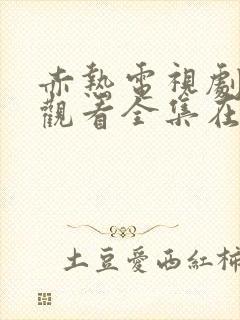 赤熱電視劇
觀看全集在
土豆愛西紅柿